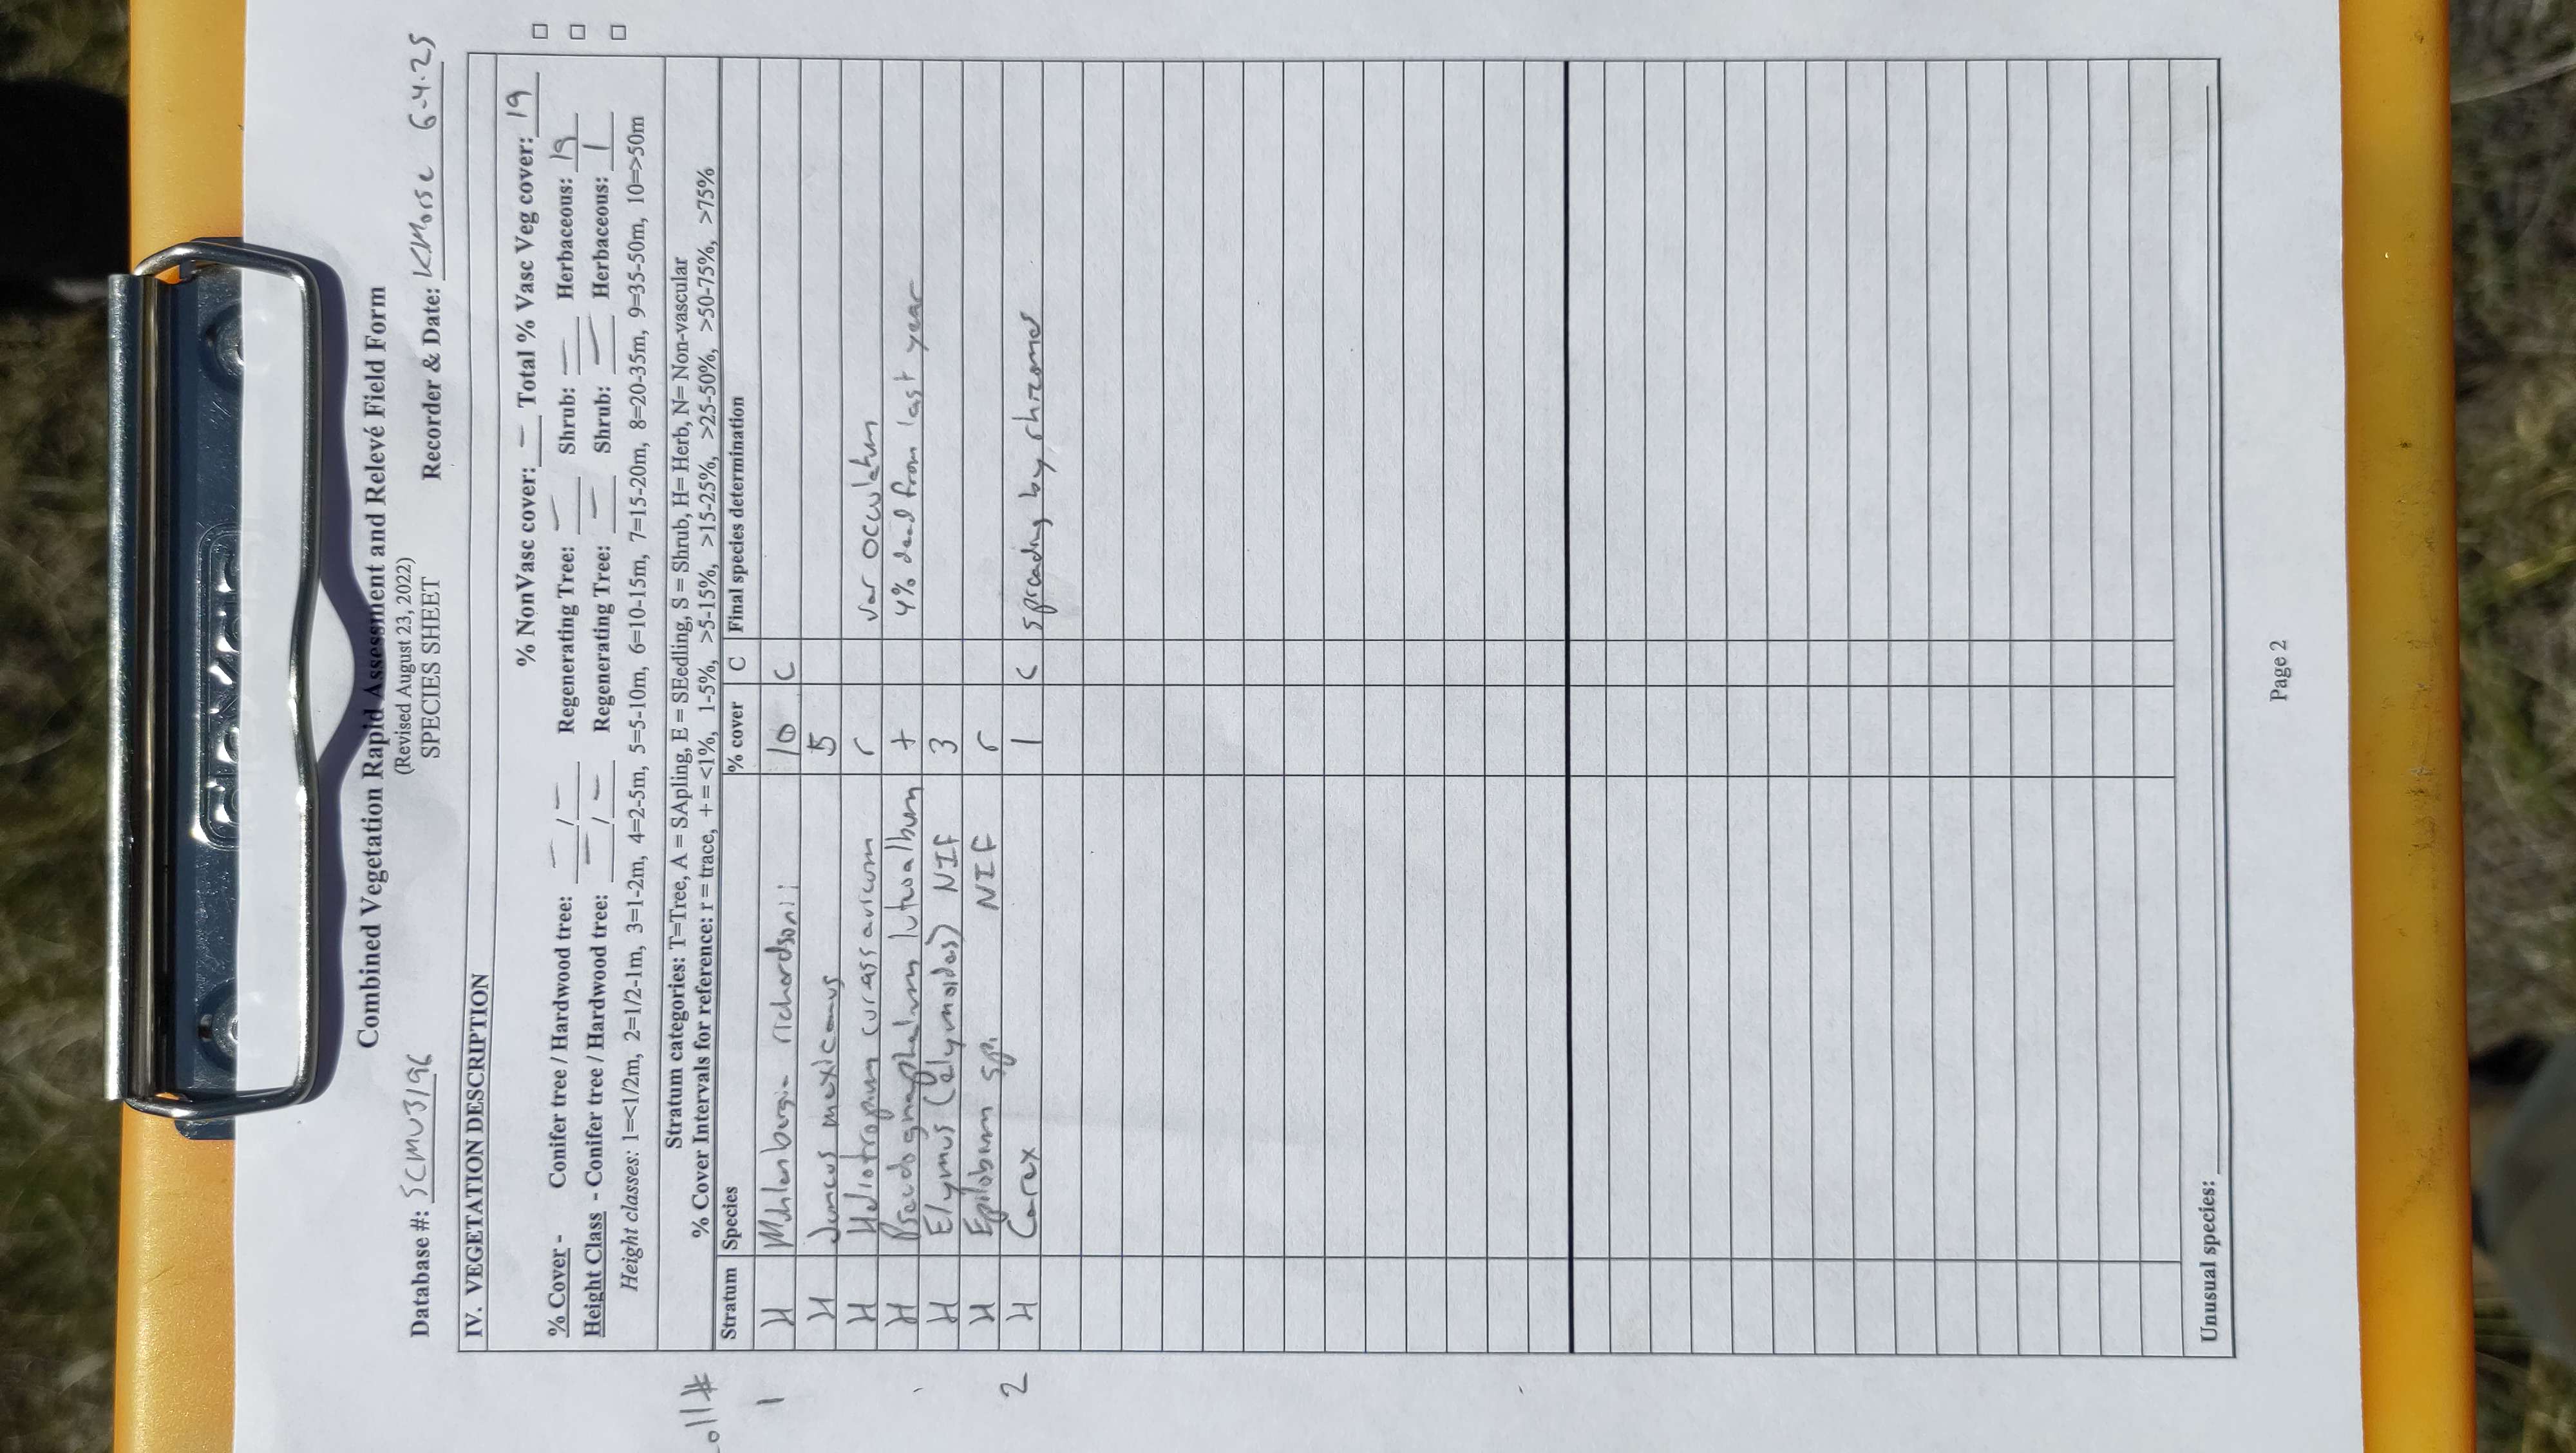 Combined Vegetation Rapid Assessment and Relevé Field Form
(Revised August 23, 2022)
SPECIES SHEET
Database #: SCMU3196 Recorder & Date: KMorse 6-4-25
IV. VEGETATION DESCRIPTION
% NonVasc cover: — Total % Vasc Veg cover: 19
% Cover - Conifer tree / Hardwood tree: — / — Regenerating Tree: — Shrub: — Herbaceous: 19
Height Class - Conifer tree / Hardwood tree: — / — Regenerating Tree: — Shrub: — Herbaceous: 1
Height classes: 1=<1/2m, 2=1/2-1m, 3=1-2m, 4=2-5m, 5=5-10m, 6=10-15m, 7=15-20m, 8=20-35m, 9=35-50m, 10=>50m
Stratum categories: T=Tree, A = SApling, E = SEedling, S = Shrub, H= Herb, N= Non-vascular
% Cover Intervals for reference: r = trace, + = <1%, 1-5%, >5-15%, >15-25%, >25-50%, >50-75%, >75%
oll# Stratum Species % cover C Final species determination
1 H Muhlenbergia richardsonii 10 C
H Juncus mexicanus 5
H Heliotropium curassavicum r var occulatum
H Pseudognaphalium luteoalbum + 4% dead from last year
H Elymus (elymoides) NIF 3
H Epilobium sp. NIF r
2 H Carex 1 C spreading by rhizomes
Unusual species:
Page 2